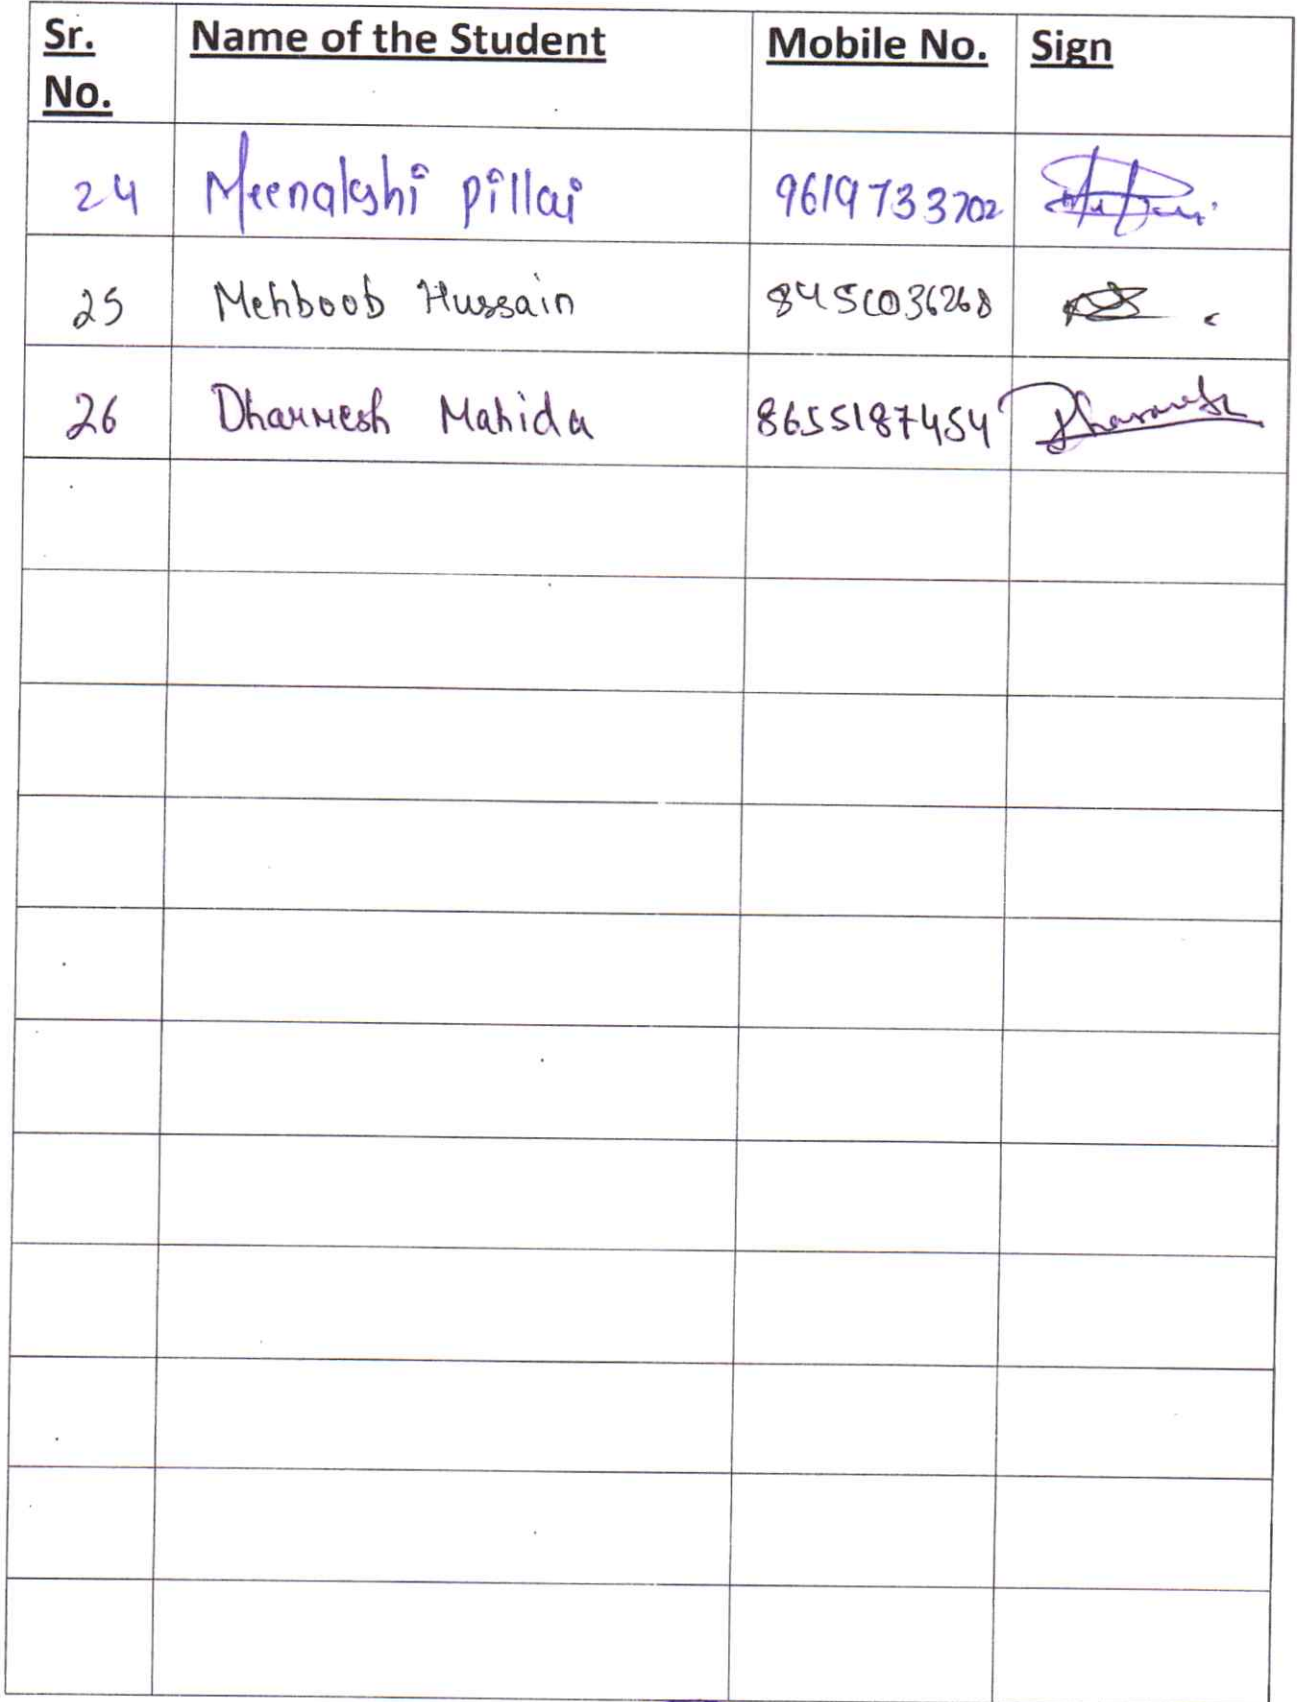 Sr. No. Name of the Student Mobile No. Sign
24 Meenakshi pillai 9619733702
25 Mehboob Hussain
26 Dharmesh Mahida 8655187454 Dharmesh